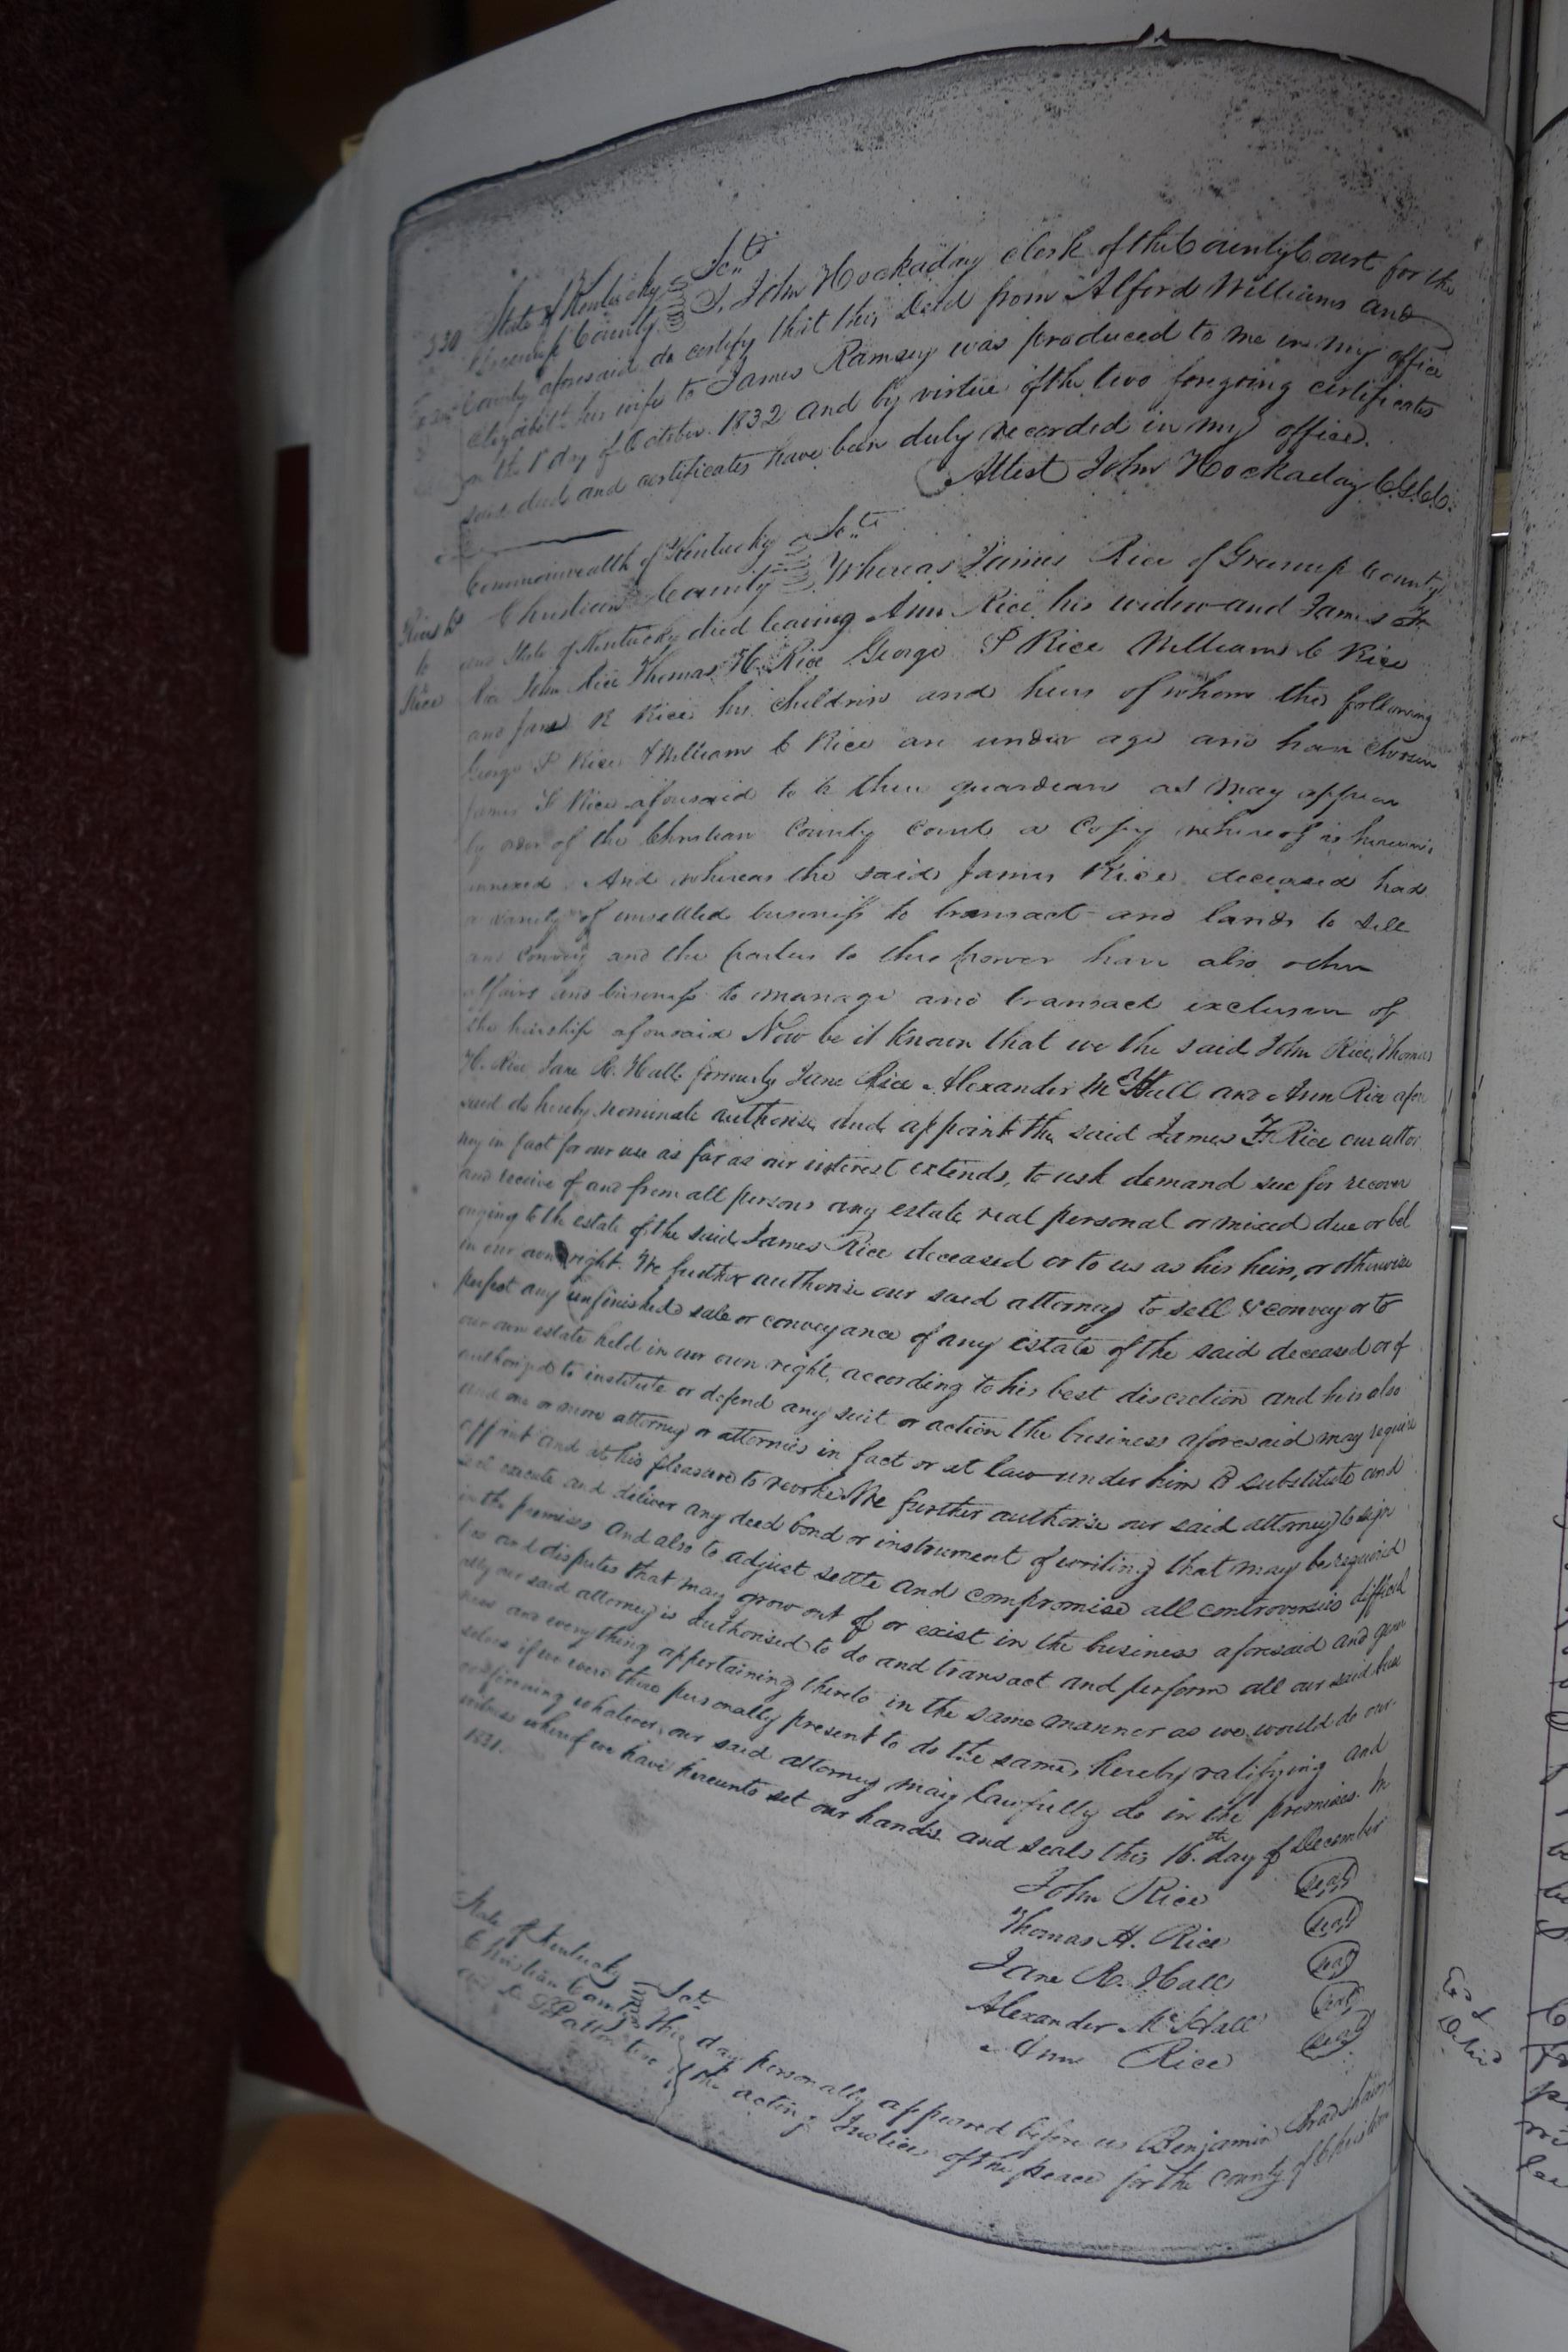 330 State of Kentucky Sct.
Greenup County I, John Hockaday clerk of the County Court for the
County aforesaid do certify that this Deed from Alford Williams and
Elizabeth his wife to James Ramsey was produced to me in my office
on the 1st day of October 1832 and by virtue of the two foregoing certificates
said deed and certificates have been duly recorded in my office.
Attest John Hockaday C.G.C.C.
Commonwealth of Kentucky Sct.
Christian County Whereas James Rice of Greenup County
and State of Kentucky died leaving Ann Rice his widow and James F.
to
Rice
Rice John Rice Thomas H. Rice George P Rice William C Rice
and Jane R Rice his children and heirs of whom the following
George P Rice & William C Rice are under age and have chosen
James F Rice aforesaid to be their guardian as may appear
by order of the Christian County court a copy whereof is herewith
annexed. And whereas the said James Rice deceased had
a variety of unsettled business to transact and lands to sell
and convey and the parties to this power have also other
affairs and business to manage and transact exclusive of
the heirship aforesaid Now be it known that we the said John Rice, Thomas
H. Rice Jane R. Hall formerly Jane Rice Alexander Mc Hall and Ann Rice afore
said do hereby nominate authorise and appoint the said James F. Rice our attor
ney in fact for our use as far as our interest extends, to ask demand sue for recover
and receive of and from all persons any estate real personal or mixed due or bel
onging to the estate of the said James Rice deceased or to us as his heirs, or otherwise
in our own right. We further authorise our said attorney to sell & convey or to
perfect any unfinished sale or conveyance of any estate of the said deceased or of
our own estate held in our own right, according to his best discretion and he is also
authorized to institute or defend any suit or action the business aforesaid may require
and one or more attorney or attornies in fact or at law under him to substitute and
appoint and at his pleasure to revoke. We further authorise our said attorney to sign
seal execute and deliver any deed bond or instrument of writing that may be required
in the premises and also to adjust settle and compromise all controversies difficul
ties and disputes that may grow out of or exist in the business aforesaid and gener
ally our said attorney is authorised to do and transact and perform all our said busi
ness and everything appertaining thereto in the same manner as we would do our-
selves if we were there personally present to do the same, hereby ratifying and
confirming whatever our said attorney may lawfully do in the premises. In
witness whereof we have hereunto set our hands and seals this 16th day of December
1831.
John Rice (seal)
Thomas H. Rice (seal)
Jane R. Hall (seal)
Alexander Mc Hall (seal)
Ann Rice (seal)
State of Kentucky Sct.
Christian County This day personally appeared before us Benjamin Bradshaw
and the acting Justices of the peace for the county of Christian